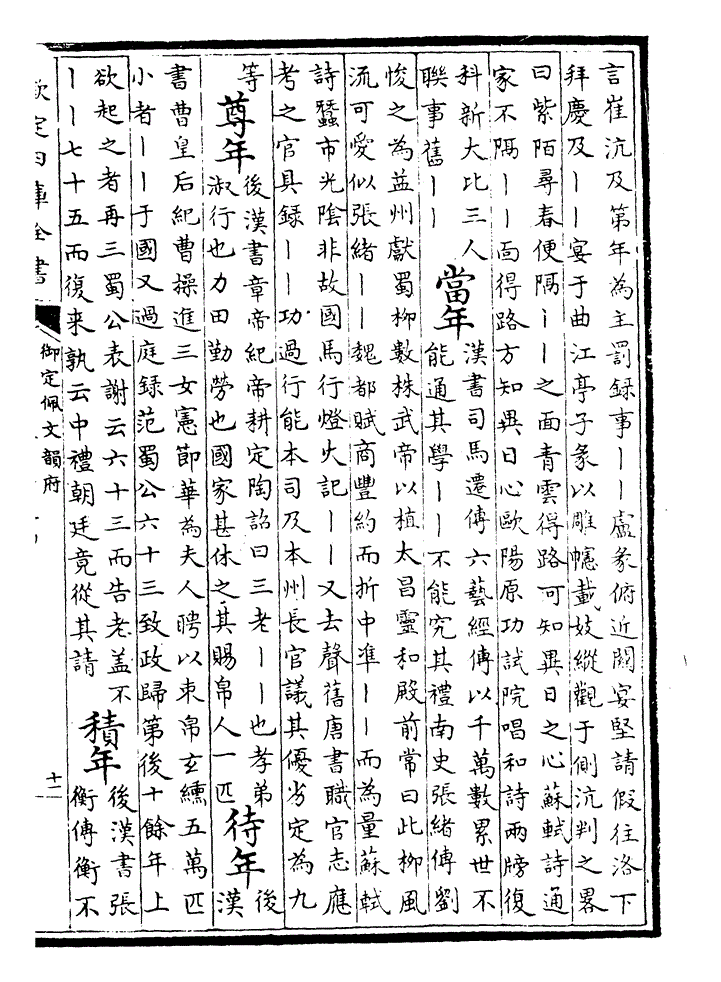 言崔沆及第年為主罰録事丨丨盧彖俯近關宴堅請假往洛下
拜慶及丨丨宴于曲江亭子彖以雕幰載妓縱觀于側沆判之畧
曰紫陌尋春便隔丨丨之面青雲得路可知異日之心蘇軾詩通
家不隔丨丨面得路方知異日心歐陽原功試院唱和詩兩牓復
科新大比三人
聯事舊丨丨
當年
漢書司馬遷傳六藝經傳以千萬數累世不
能通其學丨丨不能究其禮南史張緒傳劉
悛之為益州獻蜀柳數株武帝以植太昌靈和殿前常曰此柳風
流可愛似張緒丨丨魏都賦商豐約而折中準丨丨而為量蘇軾
詩蠶市光陰非故國馬行燈火記丨丨又去聲舊唐書職官志應
考之官具録丨丨功過行能本司及本州長官議其優劣定為九
等
尊年
後漢書章帝紀帝耕定陶詔曰三老丨丨也孝弟
淑行也力田勤勞也國家甚休之其賜帛人一匹
待年
後
漢
書曹皇后紀曹操進三女憲節華為夫人聘以束帛玄纁五萬匹
小者丨丨于國又過庭録范蜀公六十三致政歸第後十餘年上
欲起之者再三蜀公表謝云六十三而告老盖不
丨丨七十五而復来孰云中禮朝廷竟從其請
積年
後漢書張
衡傳衡不
欽定四庫全書
御定佩文韻府
十二